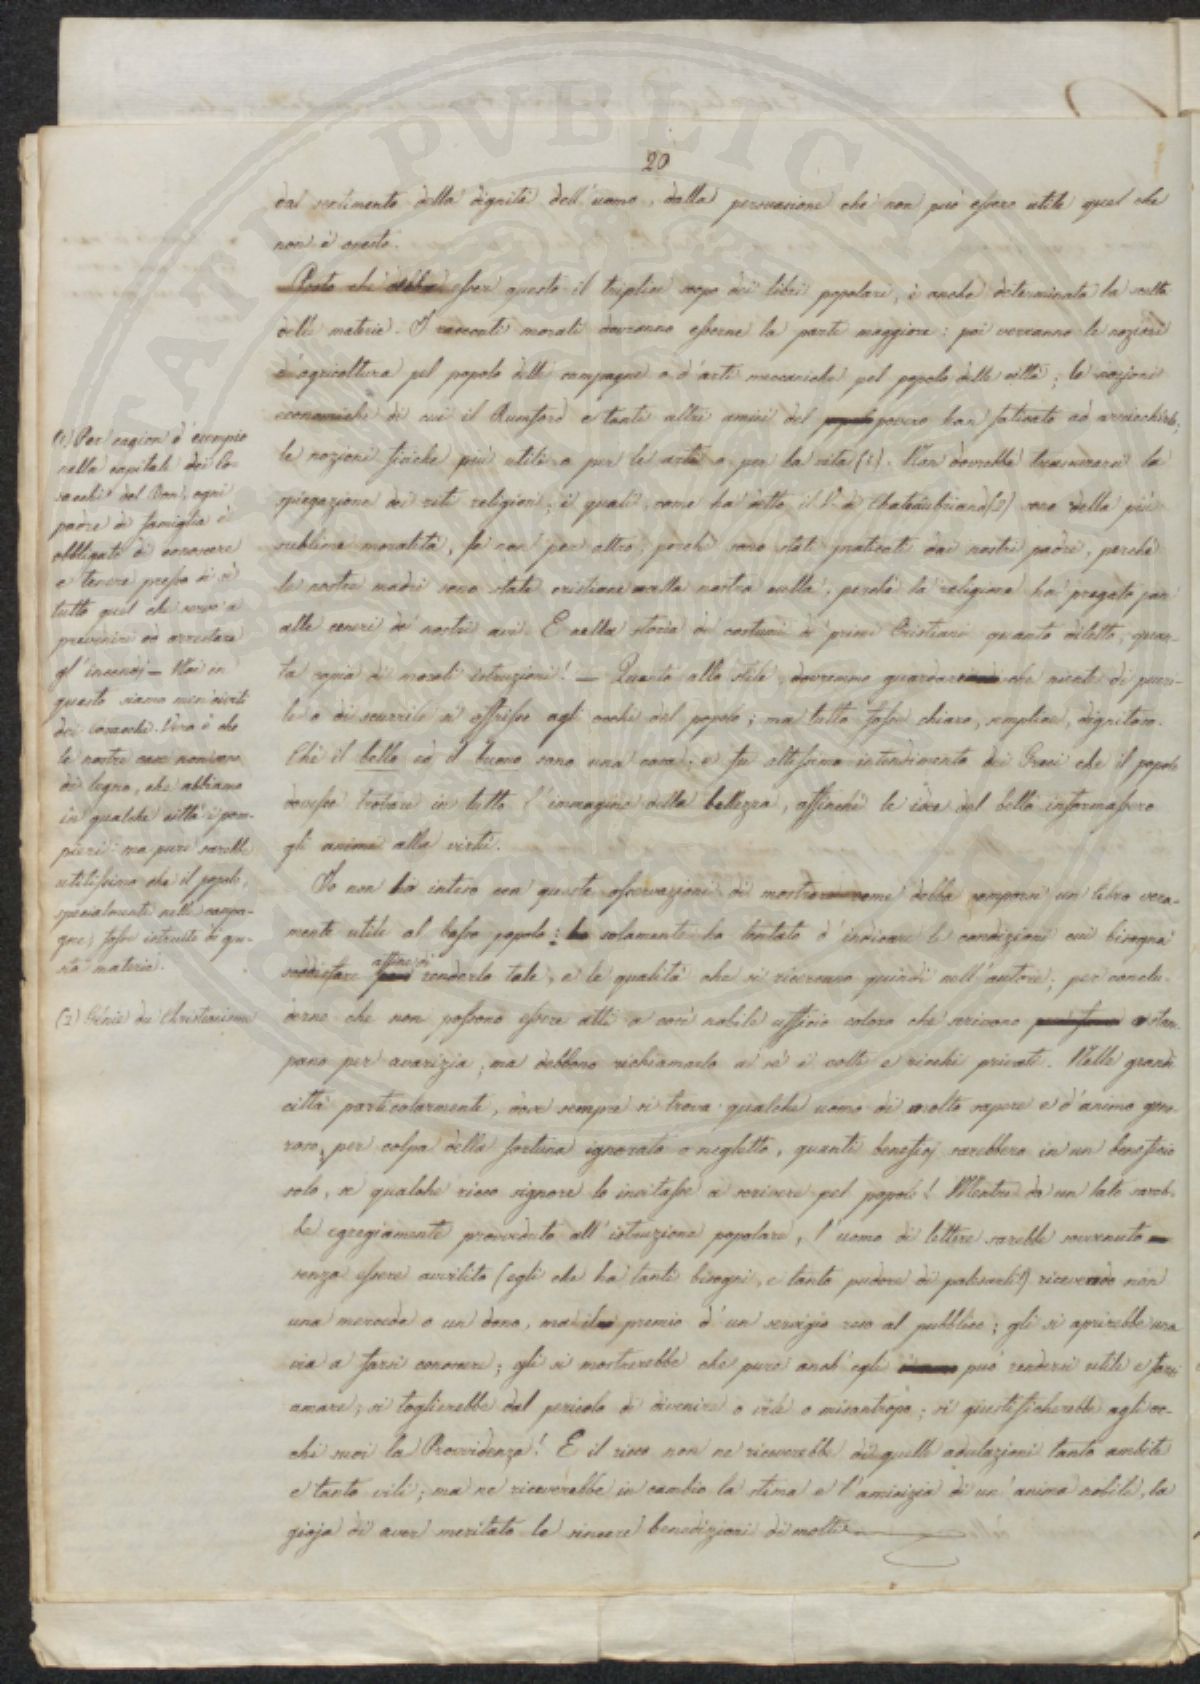 20
dal sentimento della dignità dell'uomo, dalla persuasione che non può essere utile quel che
non è onesto.
Posto che debba esser questo il triplice scopo dei libri popolari, è anche determinata la scelta
delle materie. I racconti morali dovranno esserne la parte maggiore: poi verranno le nozioni
d'agricoltura pel popolo delle campagne o d'arti meccaniche pel popolo delle città; le nozioni
economiche di cui il Rumford e tanti altri amici del povero han faticato ad arricchirlo;
le nozioni fisiche più utili o per le arti o per la vita (1). Non dovrebbe trascurarsi la
spiegazione dei riti religiosi; i quali, come ha detto il V. di Chateaubriand (2) sono della più
sublime moralità, se non per altro, perchè sono stati praticati dai nostri padri, perchè
le nostre madri sono state cristiane sulla nostra culla, perchè la religione ha pregato pace
alle ceneri de' nostri avi. E nella storia de' costumi de' primi Cristiani quanto diletto, quan-
ta copia di morali istruzioni! — Quanto allo stile, dovremmo guardare che niente di pueri-
le o di scurrile si offrisse agli occhi del popolo; ma tutto fosse chiaro, semplice, dignitoso.
Chè il bello ed il buono sono una cosa; e fu altissimo intendimento dei Greci che il popolo
dovesse trovare in tutto l'immagine della bellezza, affinchè le idee del bello informassero
gli animi alla virtù.
Io non ho inteso con queste osservazioni di mostrare come debba comporsi un libro vera-
mente utile al basso popolo: solamente ho tentato d'indicare le condizioni cui bisogna
soddisfare affine di renderlo tale, e le qualità che si ricercano quindi nell'autore; per conclu-
derne che non possono essere atti a così nobile ufficio coloro che scrivono o stam-
pano per avarizia; ma debbono richiamarlo a sè i colti e ricchi privati. Nelle grandi
città particolarmente, dove sempre si trova qualche uomo di molto sapere e d'animo gene-
roso, per colpa della fortuna ignorato o negletto, quanti beneficj sarebbero in un beneficio
solo, se qualche ricco signore lo invitasse a scrivere pel popolo! Mentre da un lato sareb-
be egregiamente provveduto all'istruzione popolare, l'uomo di lettere sarebbe sovvenuto
senza essere avvilito (egli che ha tanti bisogni, e tanto pudore di palesarli!) ricevendo non
una mercede o un dono, ma il premio d'un servigio reso al pubblico; gli si aprirebbe una
via a farsi conoscere; gli si mostrerebbe che pure anch'egli può rendersi utile e farsi
amare; si toglierebbe dal pericolo di divenire o vile o misantropo; si giustificherebbe agli oc-
chi suoi la Provvidenza! E il ricco non ne riceverebbe di quelle adulazioni tanto ambite
e tanto vili; ma ne riceverebbe in cambio la stima e l'amicizia di un'anima nobile, la
gioja di aver meritato le sincere benedizioni di molti.
(1) Per cagion d'esempio
nella capitale dei Co-
sacchi del Don, ogni
padre di famiglia è
obbligato di conoscere
e tenere presso di sè
tutto quel che serve a
prevenire od arrestare
gl'incendj — Noi in
questo siamo men civili
dei cosacchi. Vero è che
le nostre case non sono
di legno, che abbiamo
in qualche città i pom-
pieri: ma pure sarebbe
utilissimo che il popolo,
specialmente nelle campa-
gne, fosse istruito di que-
sta materia.
(2) Génie du Christianisme